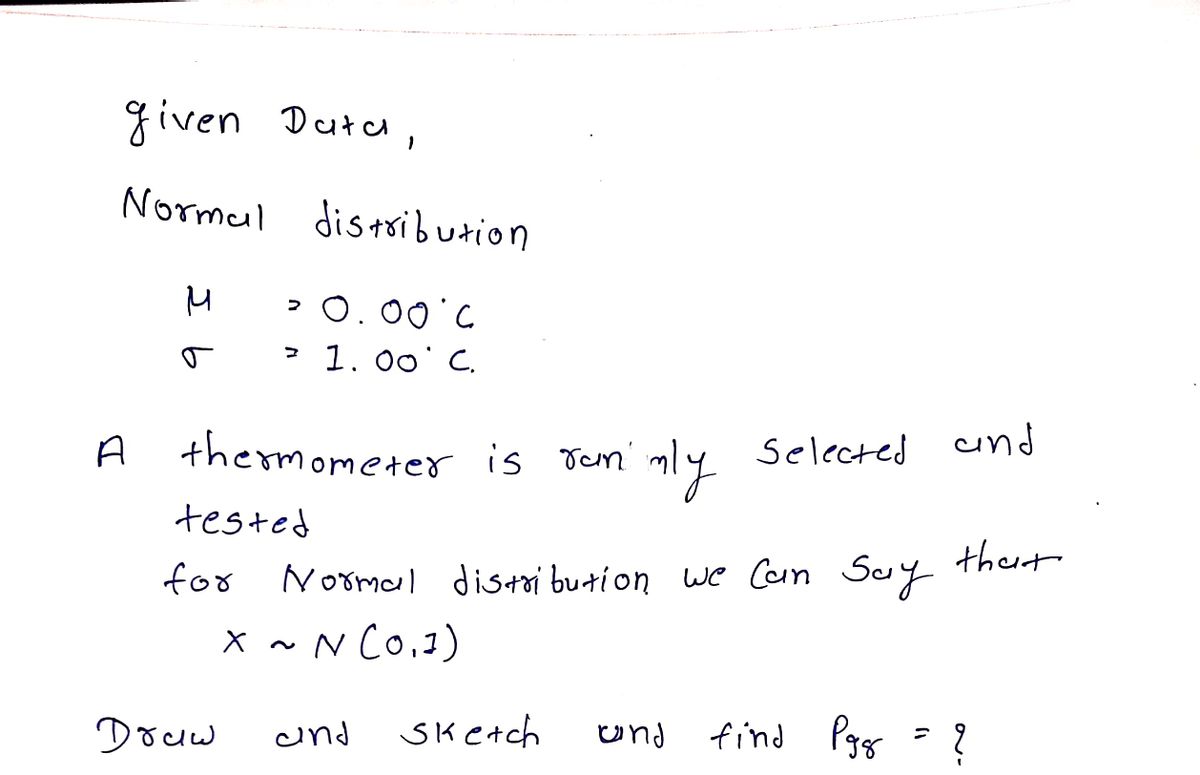 given Data,
Normal distribution
μ = 0.00°C
σ = 1.00°C.
A thermometer is selected and
tested
for Normal distribution we can say that
X ~ N(0,1)
Draw and sketch and find = ?